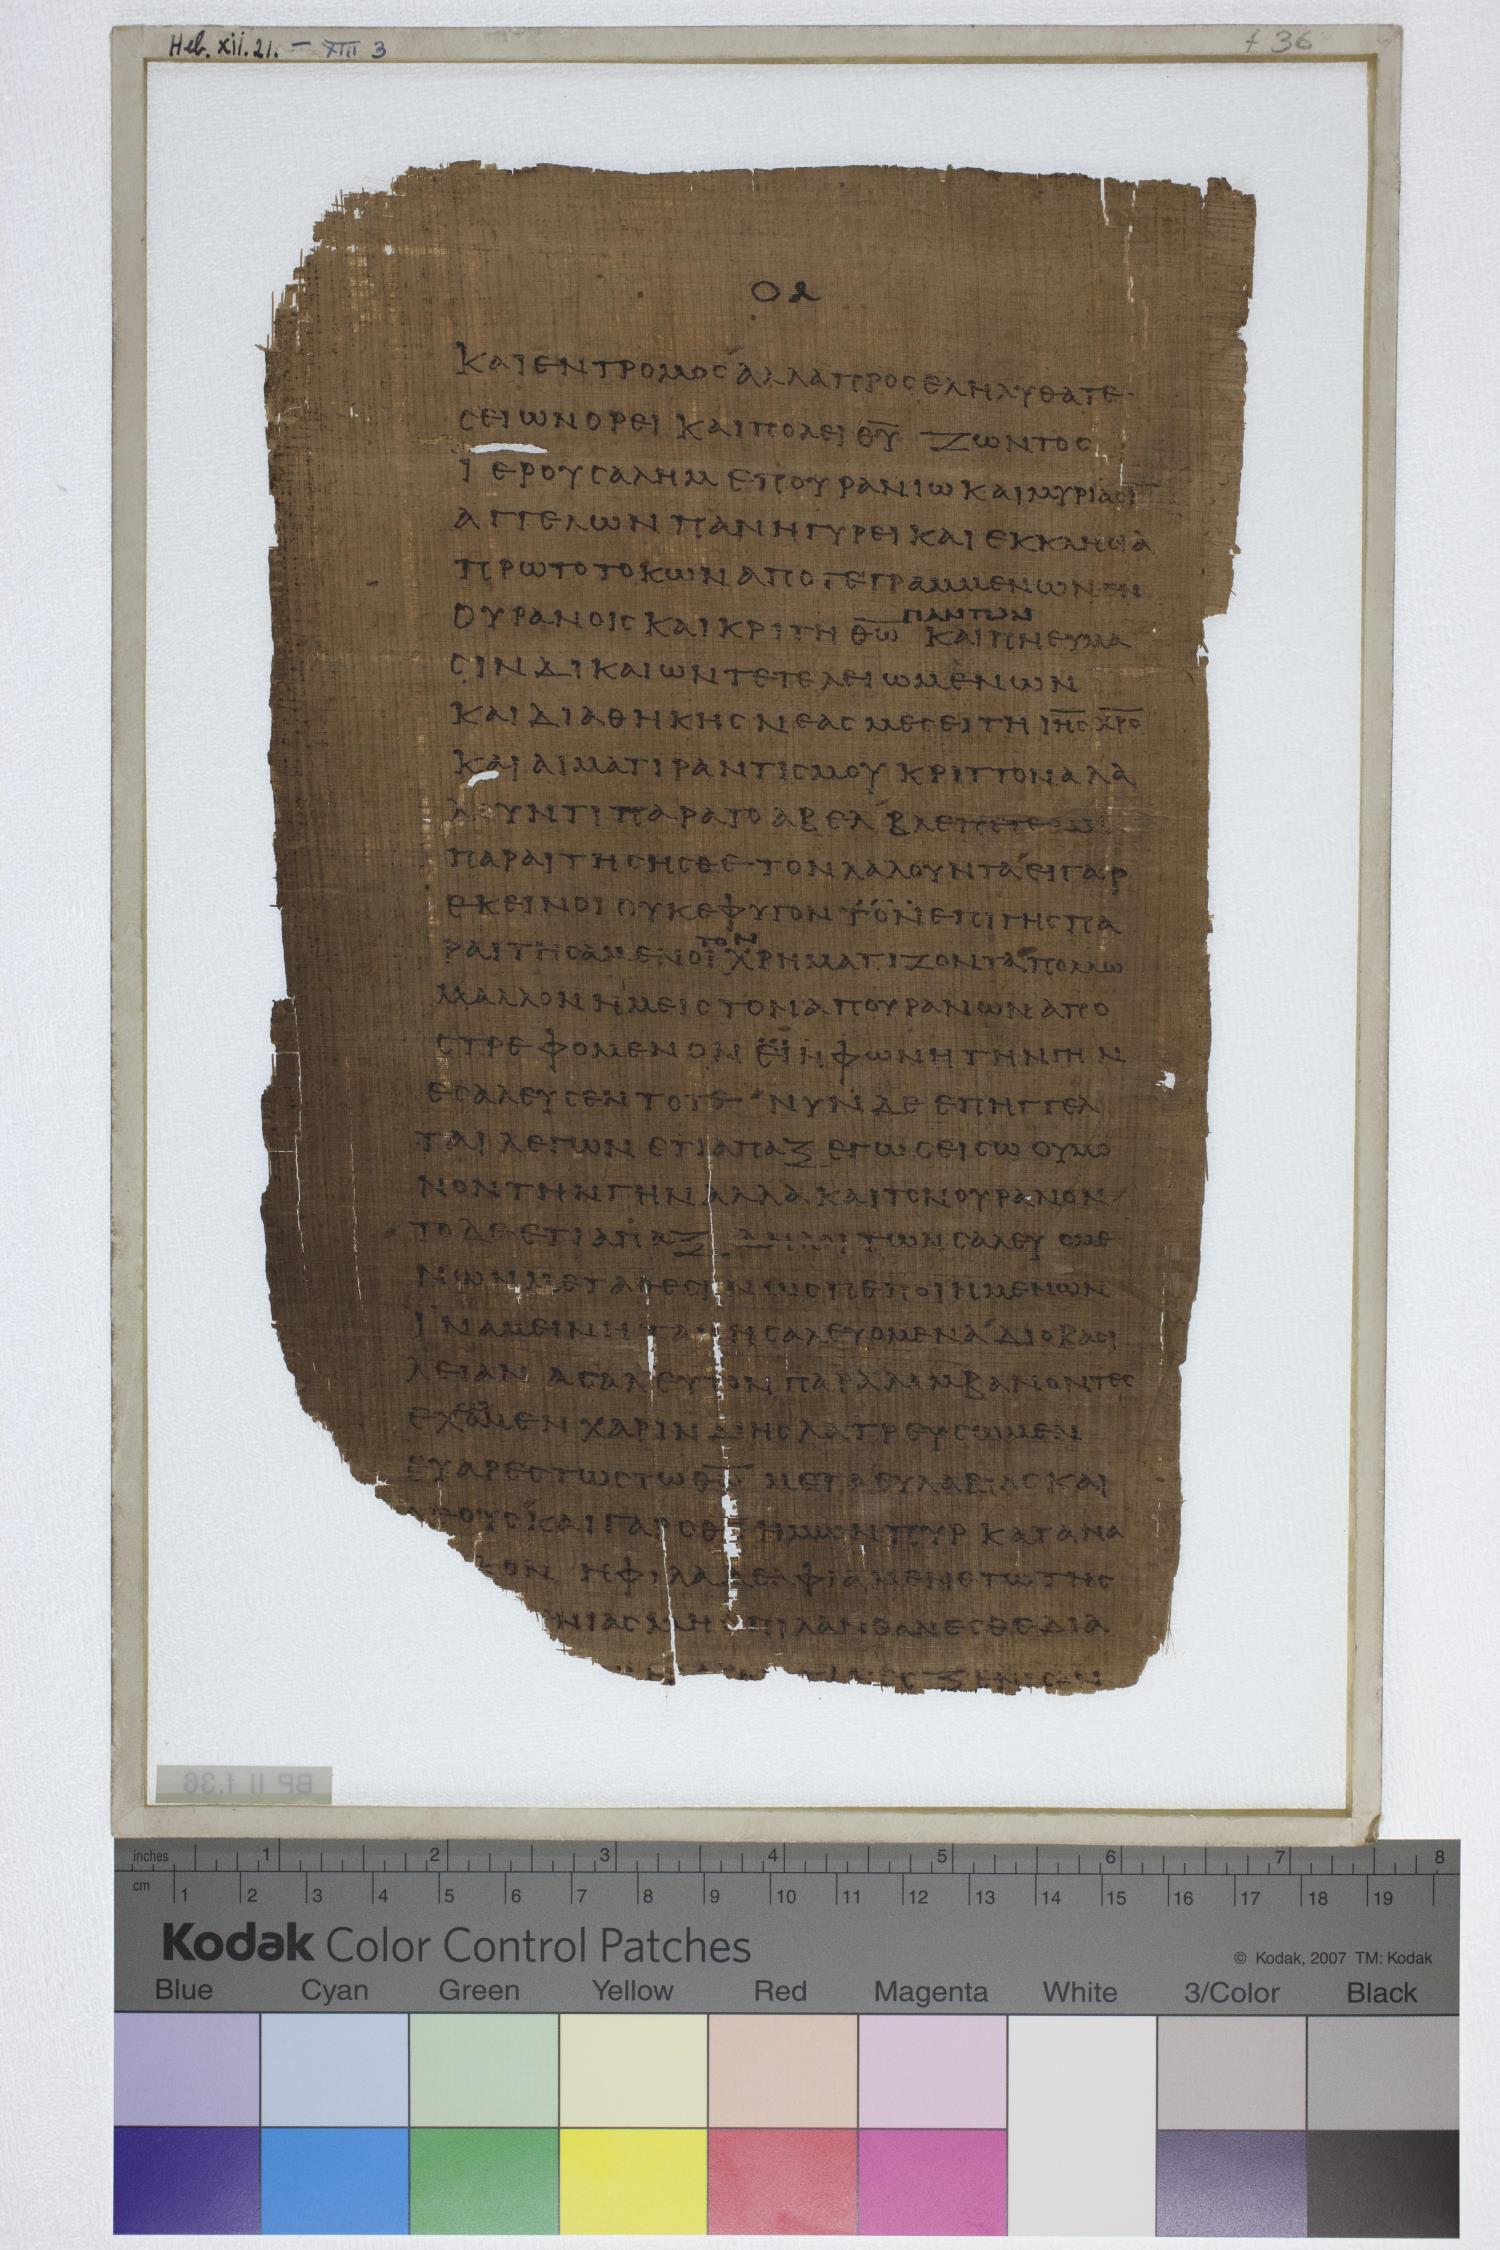 Heb. xii. 21. – XIII 3
f 36
ΟΑ
ΚΑΙ ΕΝΤΡΟΜΟΣ ΑΛΛΑ ΠΡΟΣΕΛΗΛΥΘΑΤΕ
ΣΕΙΩΝ ΟΡΕΙ ΚΑΙ ΠΟΛΕΙ Θ̅Υ̅ ΖΩΝΤΟΣ
ΙΕΡΟΥΣΑΛΗΜ ΕΠΟΥΡΑΝΙΩ ΚΑΙ ΜΥΡΙΑΣΙ
ΑΓΓΕΛΩΝ ΠΑΝΗΓΥΡΕΙ ΚΑΙ ΕΚΚΛΗΣΙΑ
ΠΡΩΤΟΤΟΚΩΝ ΑΠΟΓΕΓΡΑΜΜΕΝΩΝ ΕΝ
ΠΑΝΤΩΝ
ΟΥΡΑΝΟΙΣ ΚΑΙ ΚΡΙΤΗ Θ̅Ω̅ ΚΑΙ ΠΝΕΥΜΑ
ΣΙΝ ΔΙΚΑΙΩΝ ΤΕΤΕΛΕΙΩΜΕΝΩΝ
ΚΑΙ ΔΙΑΘΗΚΗΣ ΝΕΑΣ ΜΕΣΕΙΤΗ Ι̅Η̅Σ̅ Χ̅Ρ̅Ο̅
ΚΑΙ ΑΙΜΑΤΙ ΡΑΝΤΙΣΜΟΥ ΚΡΙΤΤΟΝΑ ΛΑ
ΛΟΥΝΤΙ ΠΑΡΑ ΤΟ ΑΒΕΛ ΒΛΕΠΕΤΕ ΜΗ
ΠΑΡΑΙΤΗΣΗΣΘΕ ΤΟΝ ΛΑΛΟΥΝΤΑ ΕΙ ΓΑΡ
ΕΚΕΙΝΟΙ ΟΥΚ ΕΦΥΓΟΝ ΤΟΝ ΕΠΙ ΓΗΣ ΠΑ
ΤΟΝ
ΡΑΙΤΗΣΑΜΕΝΟΙ ΧΡΗΜΑΤΙΖΟΝΤΑ ΠΟΛΛΩ
ΜΑΛΛΟΝ ΗΜΕΙΣ ΤΟΝ ΑΠ ΟΥΡΑΝΩΝ ΑΠΟ
ΣΤΡΕΦΟΜΕΝΟΝ ΕΙ Η ΦΩΝΗ ΤΗΝ ΓΗΝ
ΕΣΑΛΕΥΣΕΝ ΤΟΤΕ ΝΥΝ ΔΕ ΕΠΗΓΓΕΛ
ΤΑΙ ΛΕΓΩΝ ΕΤΙ ΑΠΑΞ ΕΓΩ ΣΕΙΣΩ ΟΥ ΜΟ
ΝΟΝ ΤΗΝ ΓΗΝ ΑΛΛΑ ΚΑΙ ΤΟΝ ΟΥΡΑΝΟΝ
ΤΟ ΔΕ ΕΤΙ ΑΠΑΞ ΔΗΛΟΙ ΤΩΝ ΣΑΛΕΥΟΜΕ
ΝΩΝ ΜΕΤΑΘΕΣΙΝ ΩΣ ΠΕΠΟΙΗΜΕΝΩΝ
ΙΝΑ ΜΕΙΝΗ ΤΑ ΜΗ ΣΑΛΕΥΟΜΕΝΑ ΔΙΟ ΒΑΣΙ
ΛΕΙΑΝ ΑΣΑΛΕΥΤΟΝ ΠΑΡΑΛΑΜΒΑΝΟΝΤΕΣ
ΕΧΟΜΕΝ ΧΑΡΙΝ ΔΙ ΗΣ ΛΑΤΡΕΥΣΩΜΕΝ
ΕΥΑΡΕΣΤΩΣ ΤΩ Θ̅Ω̅ ΜΕΤΑ ΕΥΛΑΒΙΑΣ ΚΑΙ
ΔΕΟΥΣ ΚΑΙ ΓΑΡ Ο Θ̅Σ̅ ΗΜΩΝ ΠΥΡ ΚΑΤΑΝΑ
ΚΟΝ Η ΦΙΛΑΔΕΛΦΙΑ ΜΕΝΕΤΩ ΤΗΣ
ΝΙΑΣ ΜΗ ΕΠΙΛΑΝΘΑΝΕΣΘΕ ΔΙΑ
ΞΕΝΙΣΑΝ
BP II f.36
inches 1 2 3 4 5 6 7 8
cm 1 2 3 4 5 6 7 8 9 10 11 12 13 14 15 16 17 18 19
Kodak Color Control Patches
© Kodak, 2007 TM: Kodak
Blue Cyan Green Yellow Red Magenta White 3/Color Black